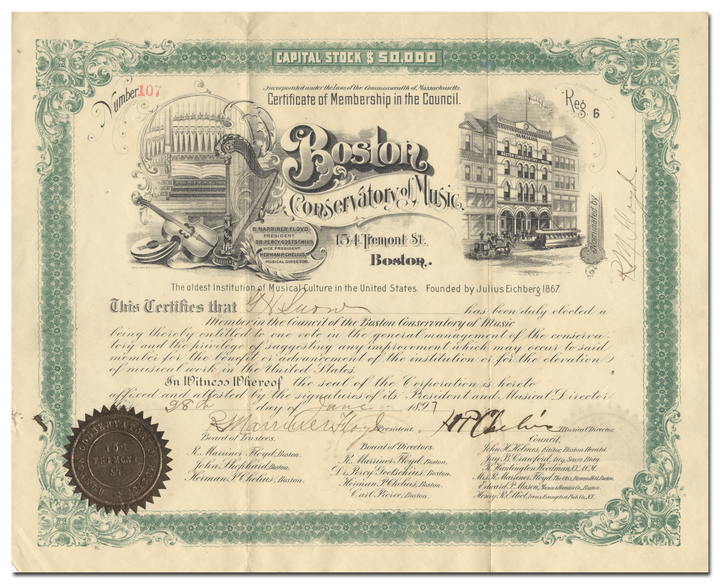 CAPITAL STOCK $ 50,000
Number 107
Incorporated under the laws of the Commonwealth of Massachusetts.
Certificate of Membership in the Council.
Reg 6
Boston
Conservatory of Music.
R. MARRINER FLOYD,
PRESIDENT.
DR. PERCY GOETSCHIUS,
VICE PRESIDENT.
HERMAN P. CHELIUS,
MUSICAL DIRECTOR.
154 Tremont St.
Boston.
Nominated by
R M Floyd
The oldest Institution of Musical Culture in the United States. Founded by Julius Eichberg 1867.
This Certifies that G H Snow has been duly elected a
Member in the Council of the Boston Conservatory of Music
being thereby entitled to one vote in the general management of the conserva-
tory and the privilege of suggesting any improvement which may occur to said
member for the benefit or advancement of the institution or for the elevation
of musical work in the United States.
In Witness Whereof the seal of the Corporation is hereto
affixed and attested by the signatures of its President and Musical Director
28th day of June 1897
R Marriner Floyd President H P Chelius Musical Director.
Board of Trustees.
R. Marriner Floyd, Boston.
John Shephard, Boston.
Herman P. Chelius, Boston.
Board of Directors.
R. Marriner Floyd, Boston.
Dr. Percy Goetschius, Boston.
Herman P. Chelius, Boston.
Carl Pierce, Boston.
Council.
John H. Holmes, Editor, Boston Herald.
Jay B. Crawford,
R. Huntington Woodman,
Mrs. R. Marriner Floyd, Boston.
Edward P. Mason, Boston.
Henry R. Elliot,